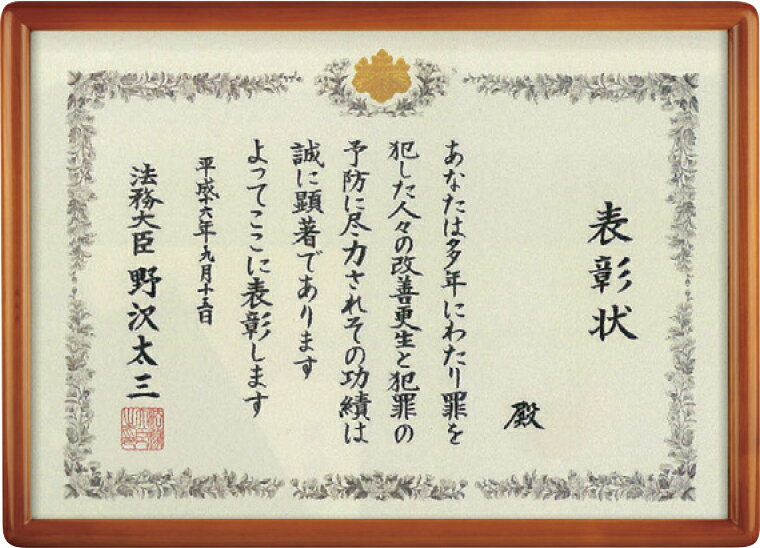 表彰状
殿
あなたは多年にわたり罪を
犯した人々の改善更生と犯罪の
予防に尽力されその功績は
誠に顕著であります
よってここに表彰します
平成十六年九月十五日
法務大臣 野沢太三